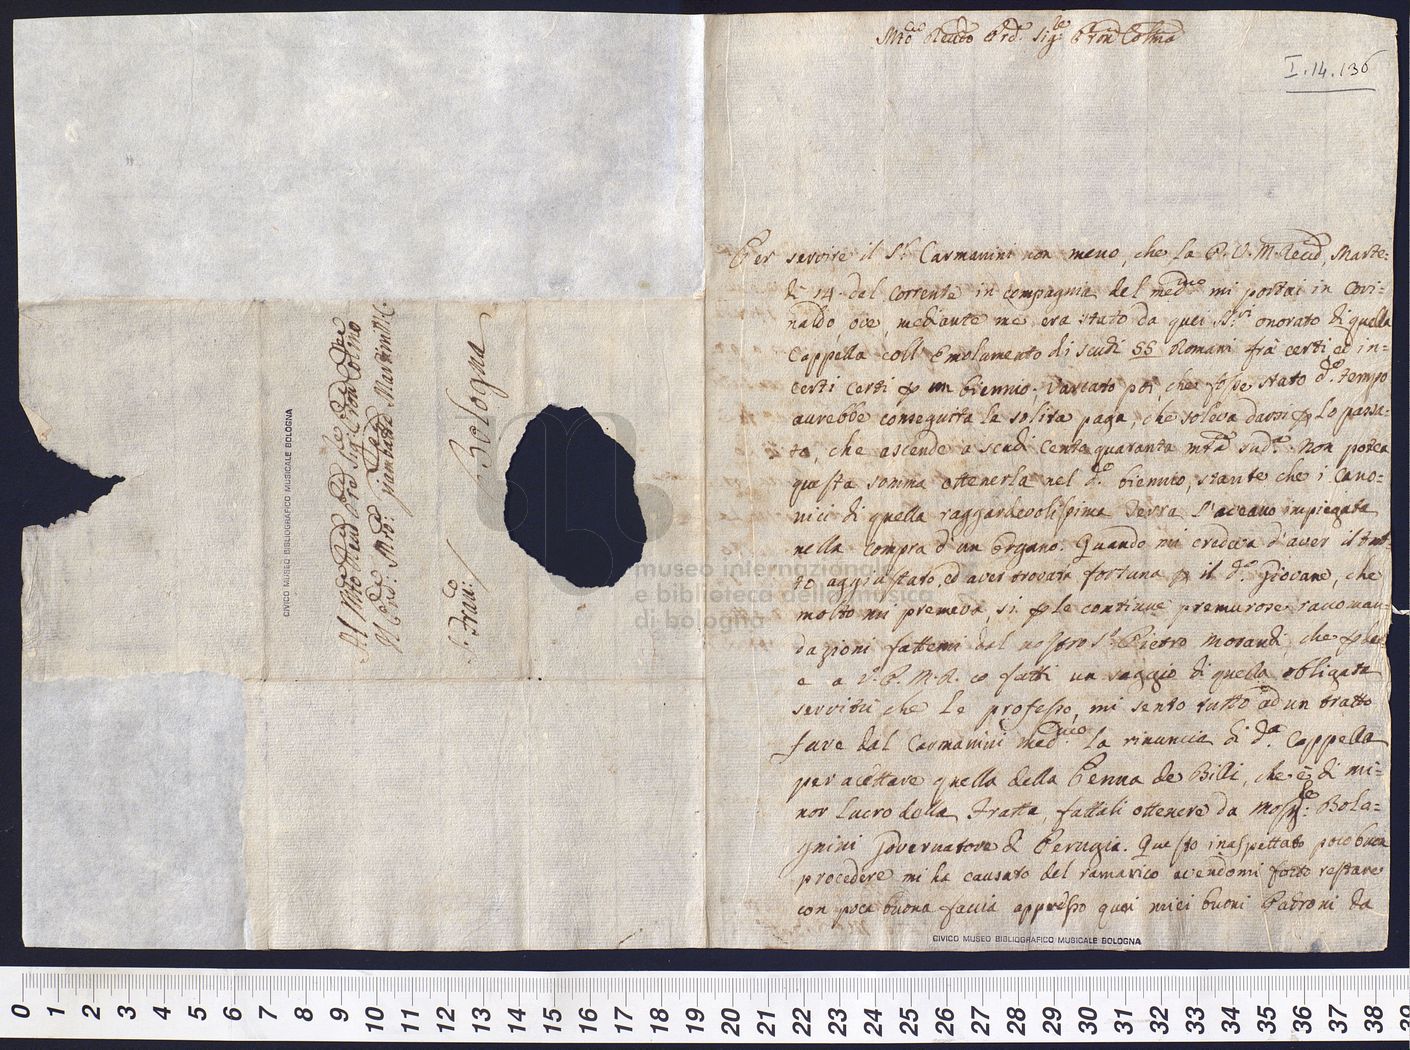 Mto Rendo Prd. Sig.re Pron Colmo
I.14.136
Per servire il Sr. Carmanini non meno, che la P. V. M. Recd, Marte=
dì 14 del Corrente in compagnia del medmo mi portai in Cori=
naldo, ove, mediante me, era stato da quei SS.ri onorato di quella
Cappella coll' Emolumento di scudi 55 Romani frà certi ed in=
certi certi p un biennio; Varcato poi, che fosse stato do. tempo
aurebbe conseguita la solita paga, che soleva darsi p lo passa=
to, che ascende a scudi cento quaranta mta sud.a Non potea
questa somma ottenerla nel do. biennio, stante che i Cano=
nici di quella raggardevolissima Terra l'aveano impiegata
nella compra d'un Organo. Quando mi credeva d'aver il tut=
to aggiustato, ed aver trovata fortuna p il do. Giovane, che
molto mi premeva, si p le continue premurose raccoman
dazioni fattemi dal nostro Sr. Pietro Morandi, che p da
e a V. P. M. R. co fatti un saggio di quella obligata
servitù che Le professo, mi sento tutto ad un tratto
fare dal Carmanini medmo la rinuncia di da. Cappella
per accettare quella della Penna de Billi, che è di mi=
nor lucro della Fratta, fattali ottenere da Mossg.re Bola=
gnini Governatore di Perugia. Questo inaspettato poco buon
procedere mi ha causato del ramarico avendomi fatto restare
con poca buona faccia appresso quei miei buoni Padroni da
CIVICO MUSEO BIBLIOGRAFICO MUSICALE BOLOGNA
Al Mto Rend Pre Sig. Pron Colmo
Il Pre Mro. Giambatta Martini M. C.
S. Franco:
Bologna
CIVICO MUSEO BIBLIOGRAFICO MUSICALE BOLOGNA
museo internazionale
e biblioteca della musica
di bologna
0 1 2 3 4 5 6 7 8 9 10 11 12 13 14 15 16 17 18 19 20 21 22 23 24 25 26 27 28 29 30 31 32 33 34 35 36 37 38